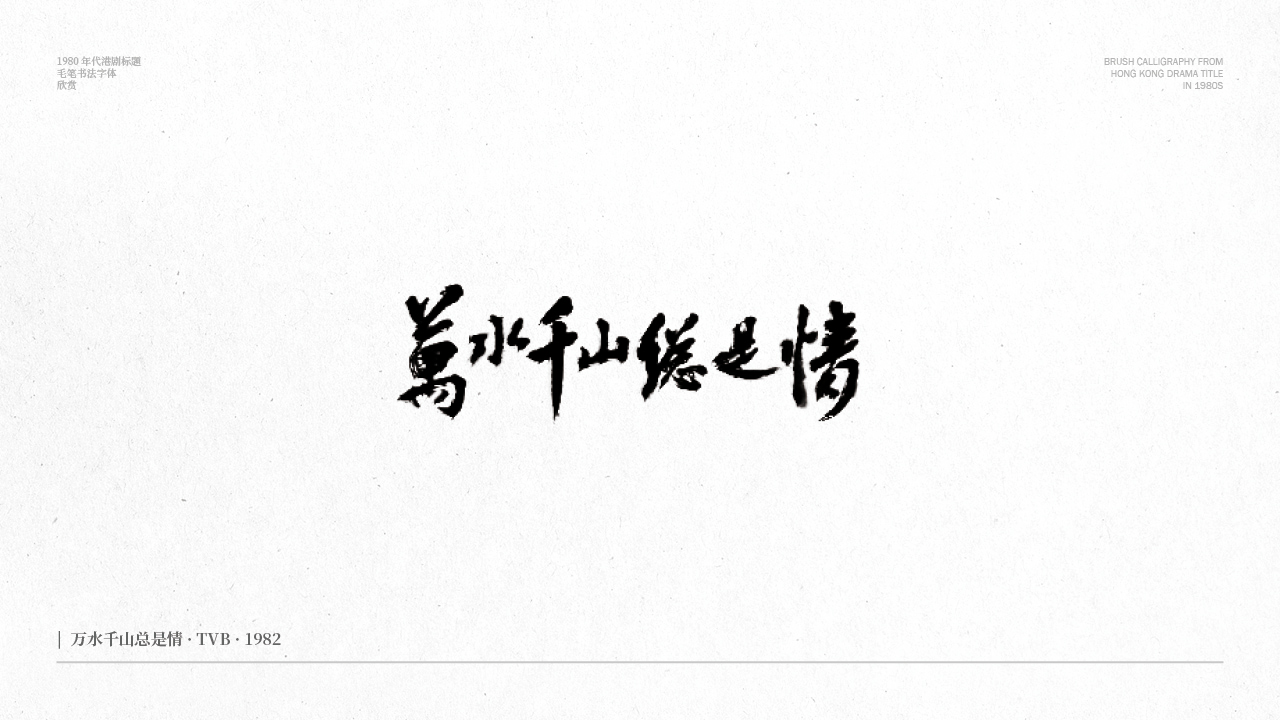 1980 年代港剧标题
毛笔书法字体
欣赏
BRUSH CALLIGRAPHY FROM
HONG KONG DRAMA TITLE
IN 1980S
萬水千山總是情
| 万水千山总是情 · TVB · 1982